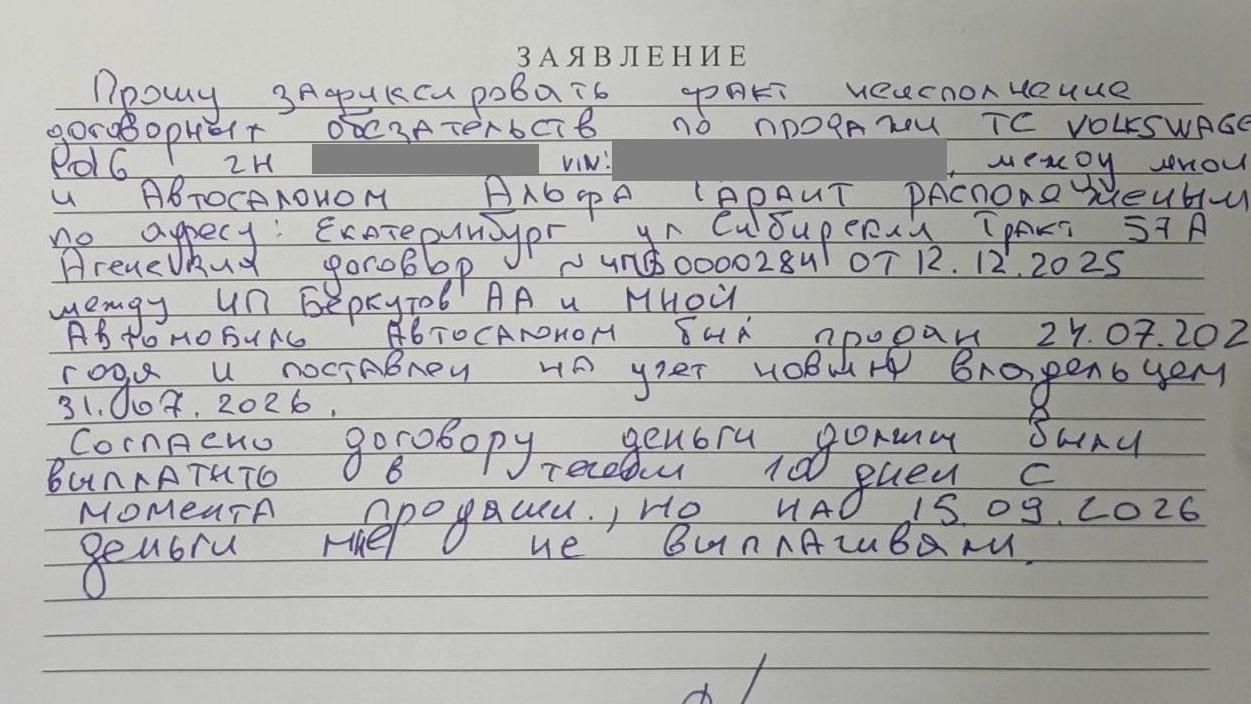 ЗАЯВЛЕНИЕ
Прошу зафиксировать факт неисполнение
договорных обсзательств по продажи ТС VOLKSWAGE
ГН VIN: , между мной
и Автосалоном Альфа Гарант располаженым
по адресу: Екатеринбург ул Сибирский Тракт 57А
договор 0000284 ОТ 12.12.2025
между ИП Беркутов АА и мной
Автомобиль Автосалоном был продан 24.07.202
года и поставлен на учет новым владельцем
31.07.2026.
Согласно договору деньги должны были
выплатить в 10 дней с
момента продажи., но на 15.09.2026
деньги мне не выплачивали.